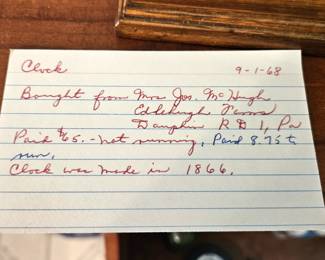 Clock 9-1-68
Bought from Mrs Jos. McHugh
Edlehugh Farms
Dauphin R D 1, Pa
Paid $65.- not running, Paid 8.75 to
run.
Clock was made in 1866.